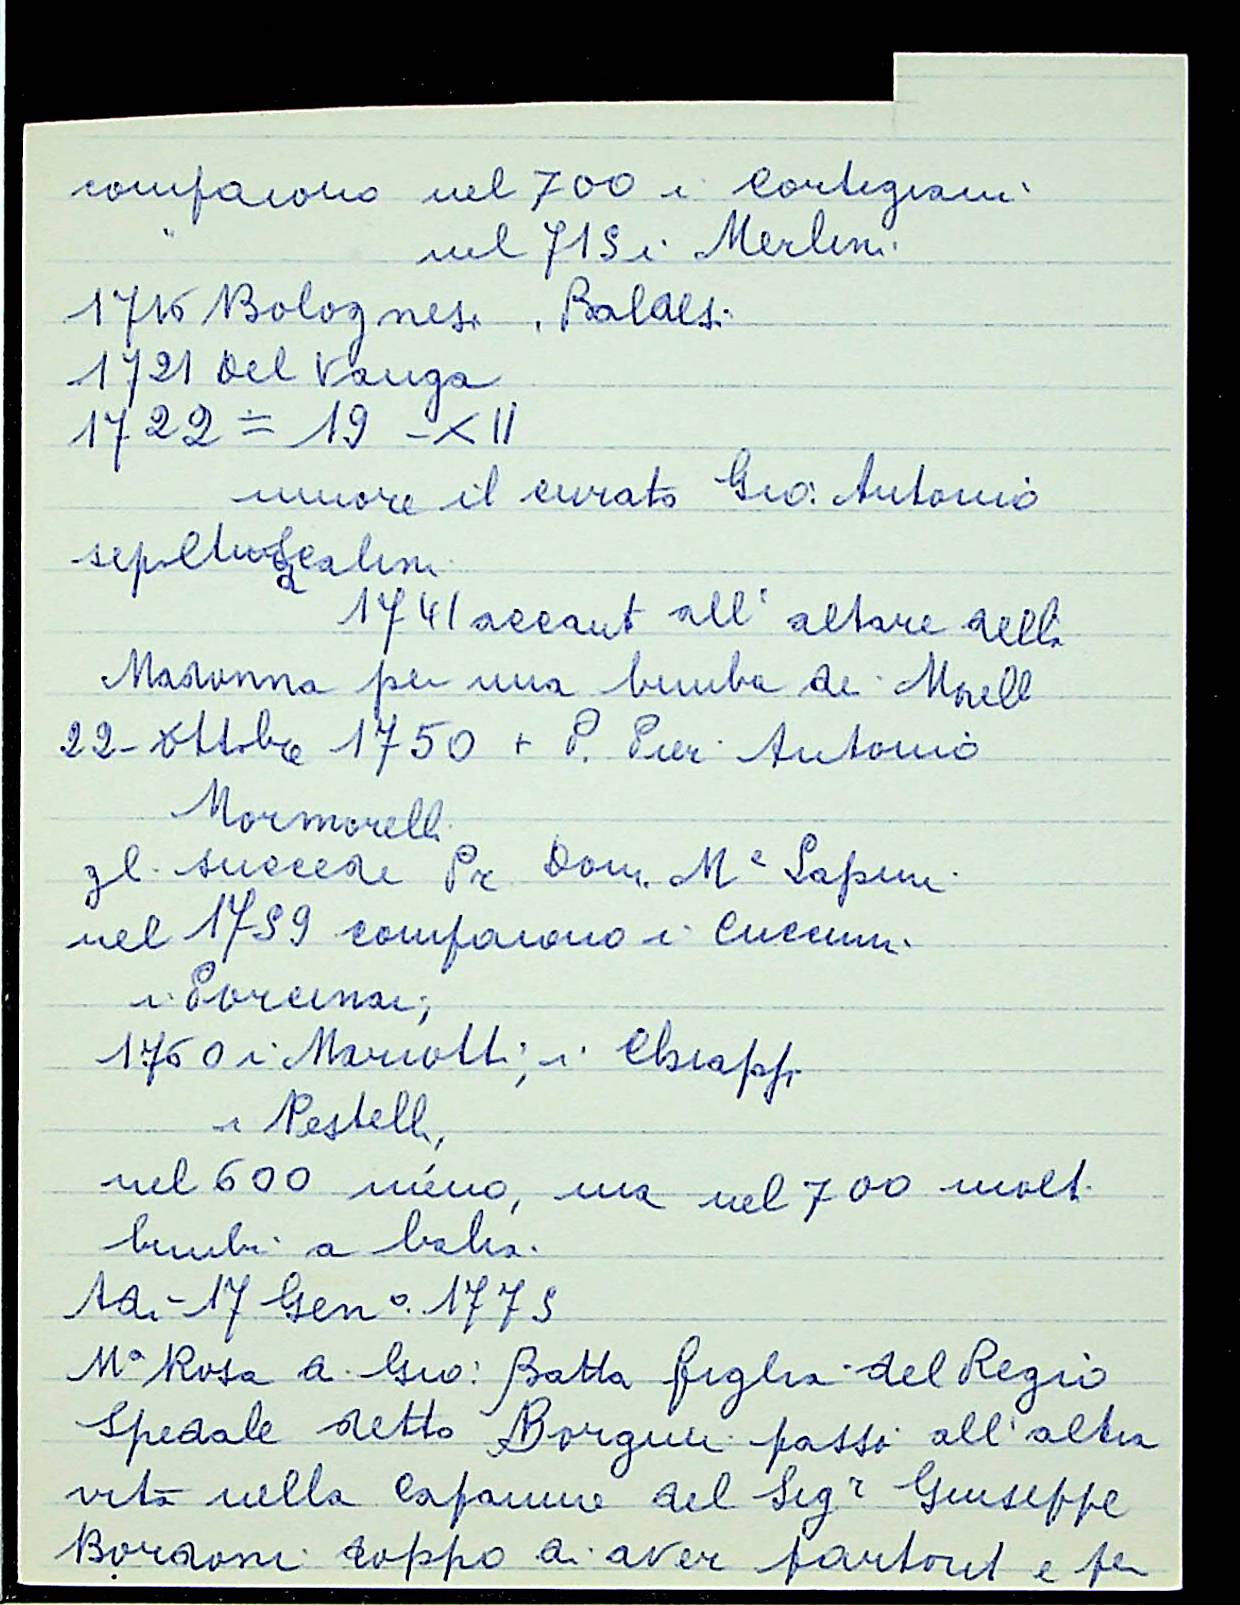 compaiono nel 700 i Cortigiani
" nel 715 i Merlini
1716 Bolognesi, Baldesi
1721 Del Vanga
1722 = 19 - XII
muore il curato Gio: Antonio
sepoltura Scalini
1741 accant all' altare della
Madonna per una bimba dei Morell
22 - Ottobre 1750 + P. Pier Antonio
Mormorelli
gli succede Pr Dom. Mª Lapini
nel 1759 compaiono i Cuccuini
i Porcinai;
1760 i Mariotti; i Chiappi
i Pestelli,
nel 600 meno, ma nel 700 molti
bimbi a balia.
Adi - 17 Genº. 1775
Mª Rosa di Gio: Batta figlia del Regio
Spedale detto passò all' altra
vita nella Capanne del Sigr Giuseppe
Bordoni doppo di aver partorit e per